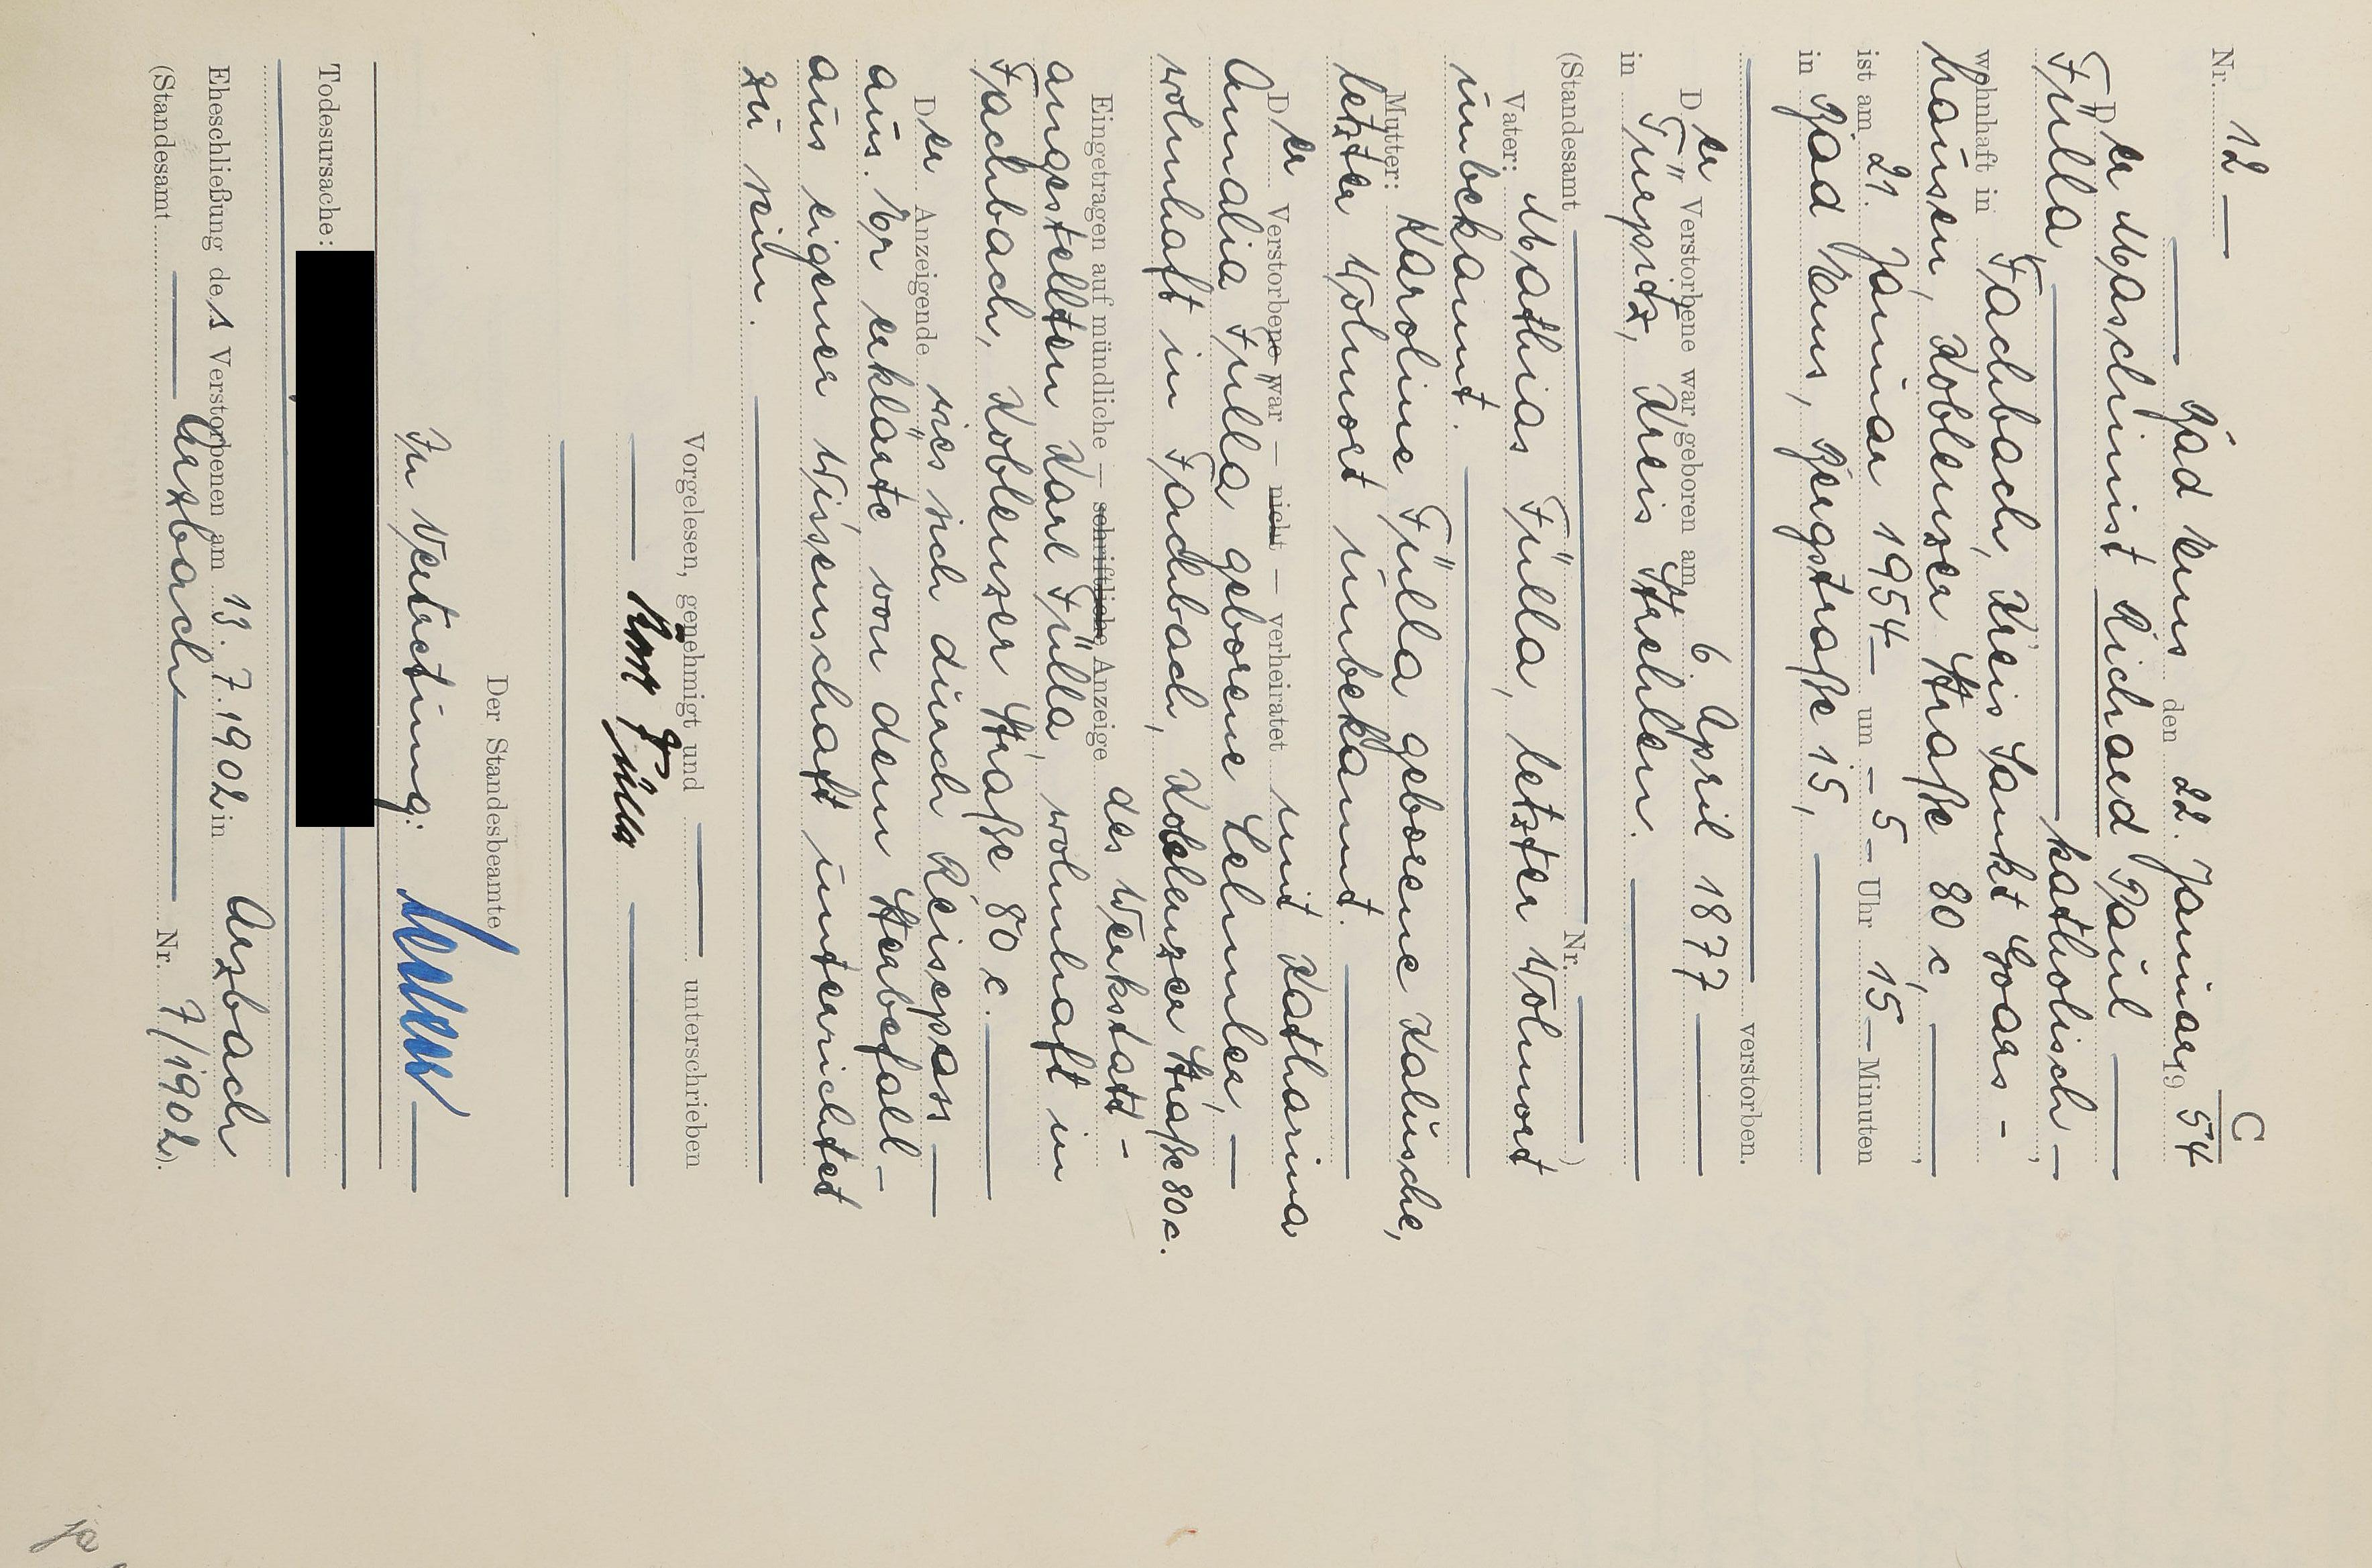 C
Nr. 12
Bad Ems den 22. Januar 1954
Der Maschinist Richard Paul
Fülla, katholisch
wohnhaft in Fachbach, Kreis Sankt Goars-
hausen, Koblenzer Straße 80 c,
ist am 21. Januar 1954 um 5 Uhr 15 Minuten
in Bad Ems, Bergstraße 15,
verstorben.
Der Verstorbene war geboren am 6. April 1877
in Türpitz, Kreis Strehlen.
(Standesamt Nr. )
Vater: Mathias Fülla, letzter Wohnort
unbekannt.
Mutter: Karoline Fülla geborene Kalusche,
letzter Wohnort unbekannt.
Der Verstorbene war — nicht — verheiratet mit Katharina
Amalia Fülla geborene Lehmler,
wohnhaft in Fachbach, Koblenzer Straße 80 c.
Eingetragen auf mündliche — schriftliche Anzeige des Werkstatt-
angestellten Karl Fülla, wohnhaft in
Fachbach, Koblenzer Straße 80 c.
Der Anzeigende wies sich durch Reisepass
aus. Er erklärte von dem Sterbefall
aus eigener Wissenschaft unterrichtet
zu sein.
Vorgelesen, genehmigt und unterschrieben
Karl Fülla
Der Standesbeamte
In Vertretung:
Todesursache:
Eheschließung des Verstorbenen am 13.7.1902 in Arzbach
(Standesamt Arzbach Nr. 7/1902).